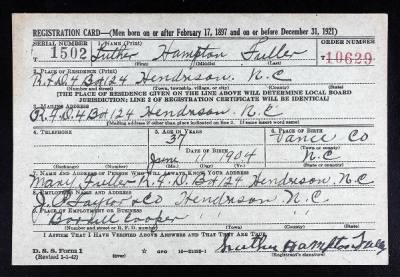 REGISTRATION CARD—(Men born on or after February 17, 1897 and on or before December 31, 1921)
SERIAL NUMBER 1. NAME (Print) ORDER NUMBER
T 1502 Luther Hampton Fuller T 10629
(First) (Middle) (Last)
2. PLACE OF RESIDENCE (Print)
R.F.D. 4 Bx 124 Henderson N.C
(Number and street) (Town, township, village, or city) (County) (State)
[THE PLACE OF RESIDENCE GIVEN ON THE LINE ABOVE WILL DETERMINE LOCAL BOARD
JURISDICTION; LINE 2 OF REGISTRATION CERTIFICATE WILL BE IDENTICAL]
3. MAILING ADDRESS
R.F.D. 4 Bx 124 Henderson N.C
[Mailing address if other than place indicated on line 2. If same insert word same]
4. TELEPHONE 5. AGE IN YEARS 6. PLACE OF BIRTH
37 Vance Co
DATE OF BIRTH (Town or county)
June 1904 N.C
(Exchange) (Number) (Mo.) (Day) (Yr.) (State or country)
7. NAME AND ADDRESS OF PERSON WHO WILL ALWAYS KNOW YOUR ADDRESS
Mary Fuller R.F.D. Bx 124 Henderson N.C
8. EMPLOYER'S NAME AND ADDRESS
J.P. Taylor & Co Henderson N.C
9. PLACE OF EMPLOYMENT OR BUSINESS
Cooper " " "
(Number and street or R. F. D. number) (Town) (County) (State)
I AFFIRM THAT I HAVE VERIFIED ABOVE ANSWERS AND THAT THEY ARE TRUE.
D. S. S. Form 1
(Revised 1-1-42) GPO 16—21630-1 Luther Hampton Fuller
(Registrant's signature)